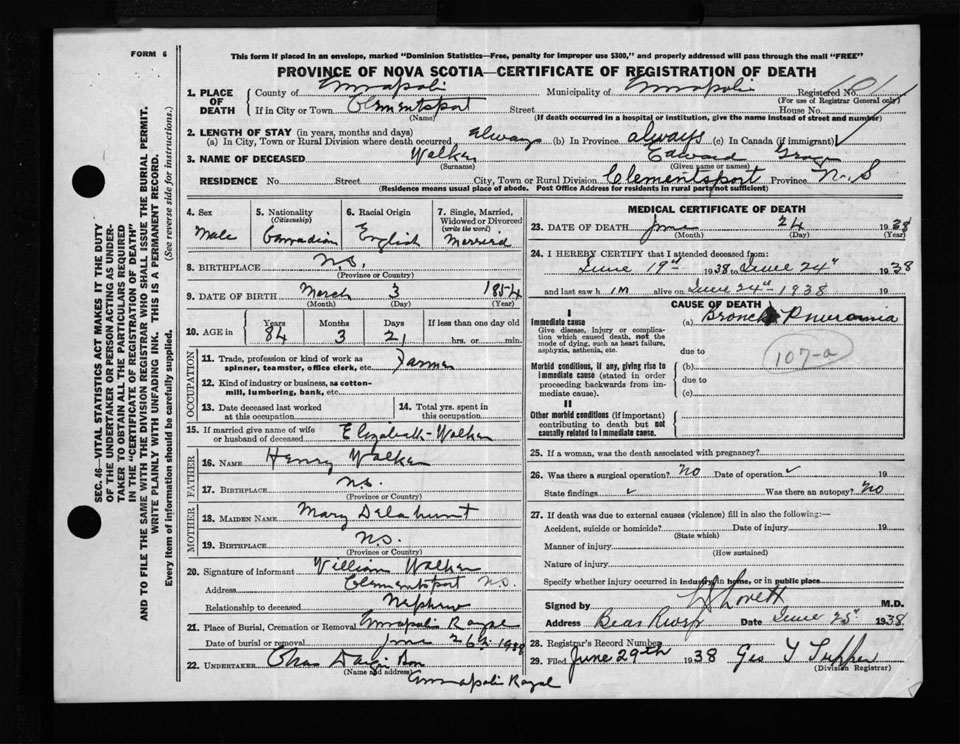 FORM 6
This form if placed in an envelope, marked "Dominion Statistics—Free, penalty for improper use $300," and properly addressed will pass through the mail "FREE"
PROVINCE OF NOVA SCOTIA—CERTIFICATE OF REGISTRATION OF DEATH
SEC. 46—VITAL STATISTICS ACT MAKES IT THE DUTY
OF THE UNDERTAKER OR PERSON ACTING AS UNDER-
TAKER TO OBTAIN ALL THE PARTICULARS REQUIRED
IN THE "CERTIFICATE OF REGISTRATION OF DEATH"
AND TO FILE THE SAME WITH THE DIVISION REGISTRAR WHO SHALL ISSUE THE BURIAL PERMIT.
WRITE PLAINLY WITH UNFADING INK. THIS IS A PERMANENT RECORD.
Every item of information should be carefully supplied. (See reverse side for instructions.)
1. PLACE OF DEATH
County of Annapolis Municipality of Annapolis Registered No. 101
(For use of Registrar General only)
If in City or Town Clementsport Street House No.
(Name) (If death occurred in a hospital or institution, give the name instead of street and number)
2. LENGTH OF STAY (in years, months and days)
(a) In City, Town or Rural Division where death occurred always (b) In Province always (c) In Canada (if immigrant) ✓
3. NAME OF DECEASED Walker Edward
(Surname) (Given name or names)
RESIDENCE No. Street City, Town or Rural Division Clementsport Province N.S
(Residence means usual place of abode. Post Office Address for residents in rural parts not sufficient)
4. Sex Male
5. Nationality (Citizenship) Canadian
6. Racial Origin English
7. Single, Married, Widowed or Divorced (write the word) Married
8. BIRTHPLACE N.S.
(Province or Country)
9. DATE OF BIRTH March 3 1854
(Month) (Day) (Year)
10. AGE in Years Months Days If less than one day old
84 3 21 hrs. or min.
OCCUPATION
11. Trade, profession or kind of work as spinner, teamster, office clerk, etc. Farmer
12. Kind of industry or business, as cotton-mill, lumbering, bank, etc.
13. Date deceased last worked at this occupation
14. Total yrs. spent in this occupation
15. If married give name of wife or husband of deceased Elizabeth Walker
FATHER
16. NAME Henry Walker
17. BIRTHPLACE N.S.
(Province or Country)
MOTHER
18. MAIDEN NAME Mary Delahunt
19. BIRTHPLACE N.S.
(Province or Country)
20. Signature of informant William Walker
Address Clementsport N.S.
Relationship to deceased Nephew
21. Place of Burial, Cremation or Removal Annapolis Royal
Date of burial or removal June 26th 1938
22. UNDERTAKER Chas
(Name and address)
Annapolis Royal
MEDICAL CERTIFICATE OF DEATH
23. DATE OF DEATH June 24 1938
(Month) (Day) (Year)
24. I HEREBY CERTIFY that I attended deceased from:
June 19th 1938 to June 24th 1938
and last saw h im alive on June 24th 1938 19
CAUSE OF DEATH
I
Immediate cause
Give disease, injury or complication which caused death, not the mode of dying, such as heart failure, asphyxia, asthenia, etc.
(a) Broncho Pneumonia
due to
107-a
Morbid conditions, if any, giving rise to immediate cause (stated in order proceeding backwards from immediate cause).
(b)
due to
(c)
II
Other morbid conditions (if important) contributing to death but not causally related to immediate cause.
25. If a woman, was the death associated with pregnancy?
26. Was there a surgical operation? No Date of operation ✓ 19
State findings ✓ Was there an autopsy? No
27. If death was due to external causes (violence) fill in also the following:—
Accident, suicide or homicide? Date of injury 19
(State which)
Manner of injury
(How sustained)
Nature of injury
Specify whether injury occurred in industry, in home, or in public place
Signed by Lovett M.D.
Address Bear River Date June 25th 1938
28. Registrar's Record Number
29. Filed June 29th 1938 Geo Y Tupper
(Division Registrar)